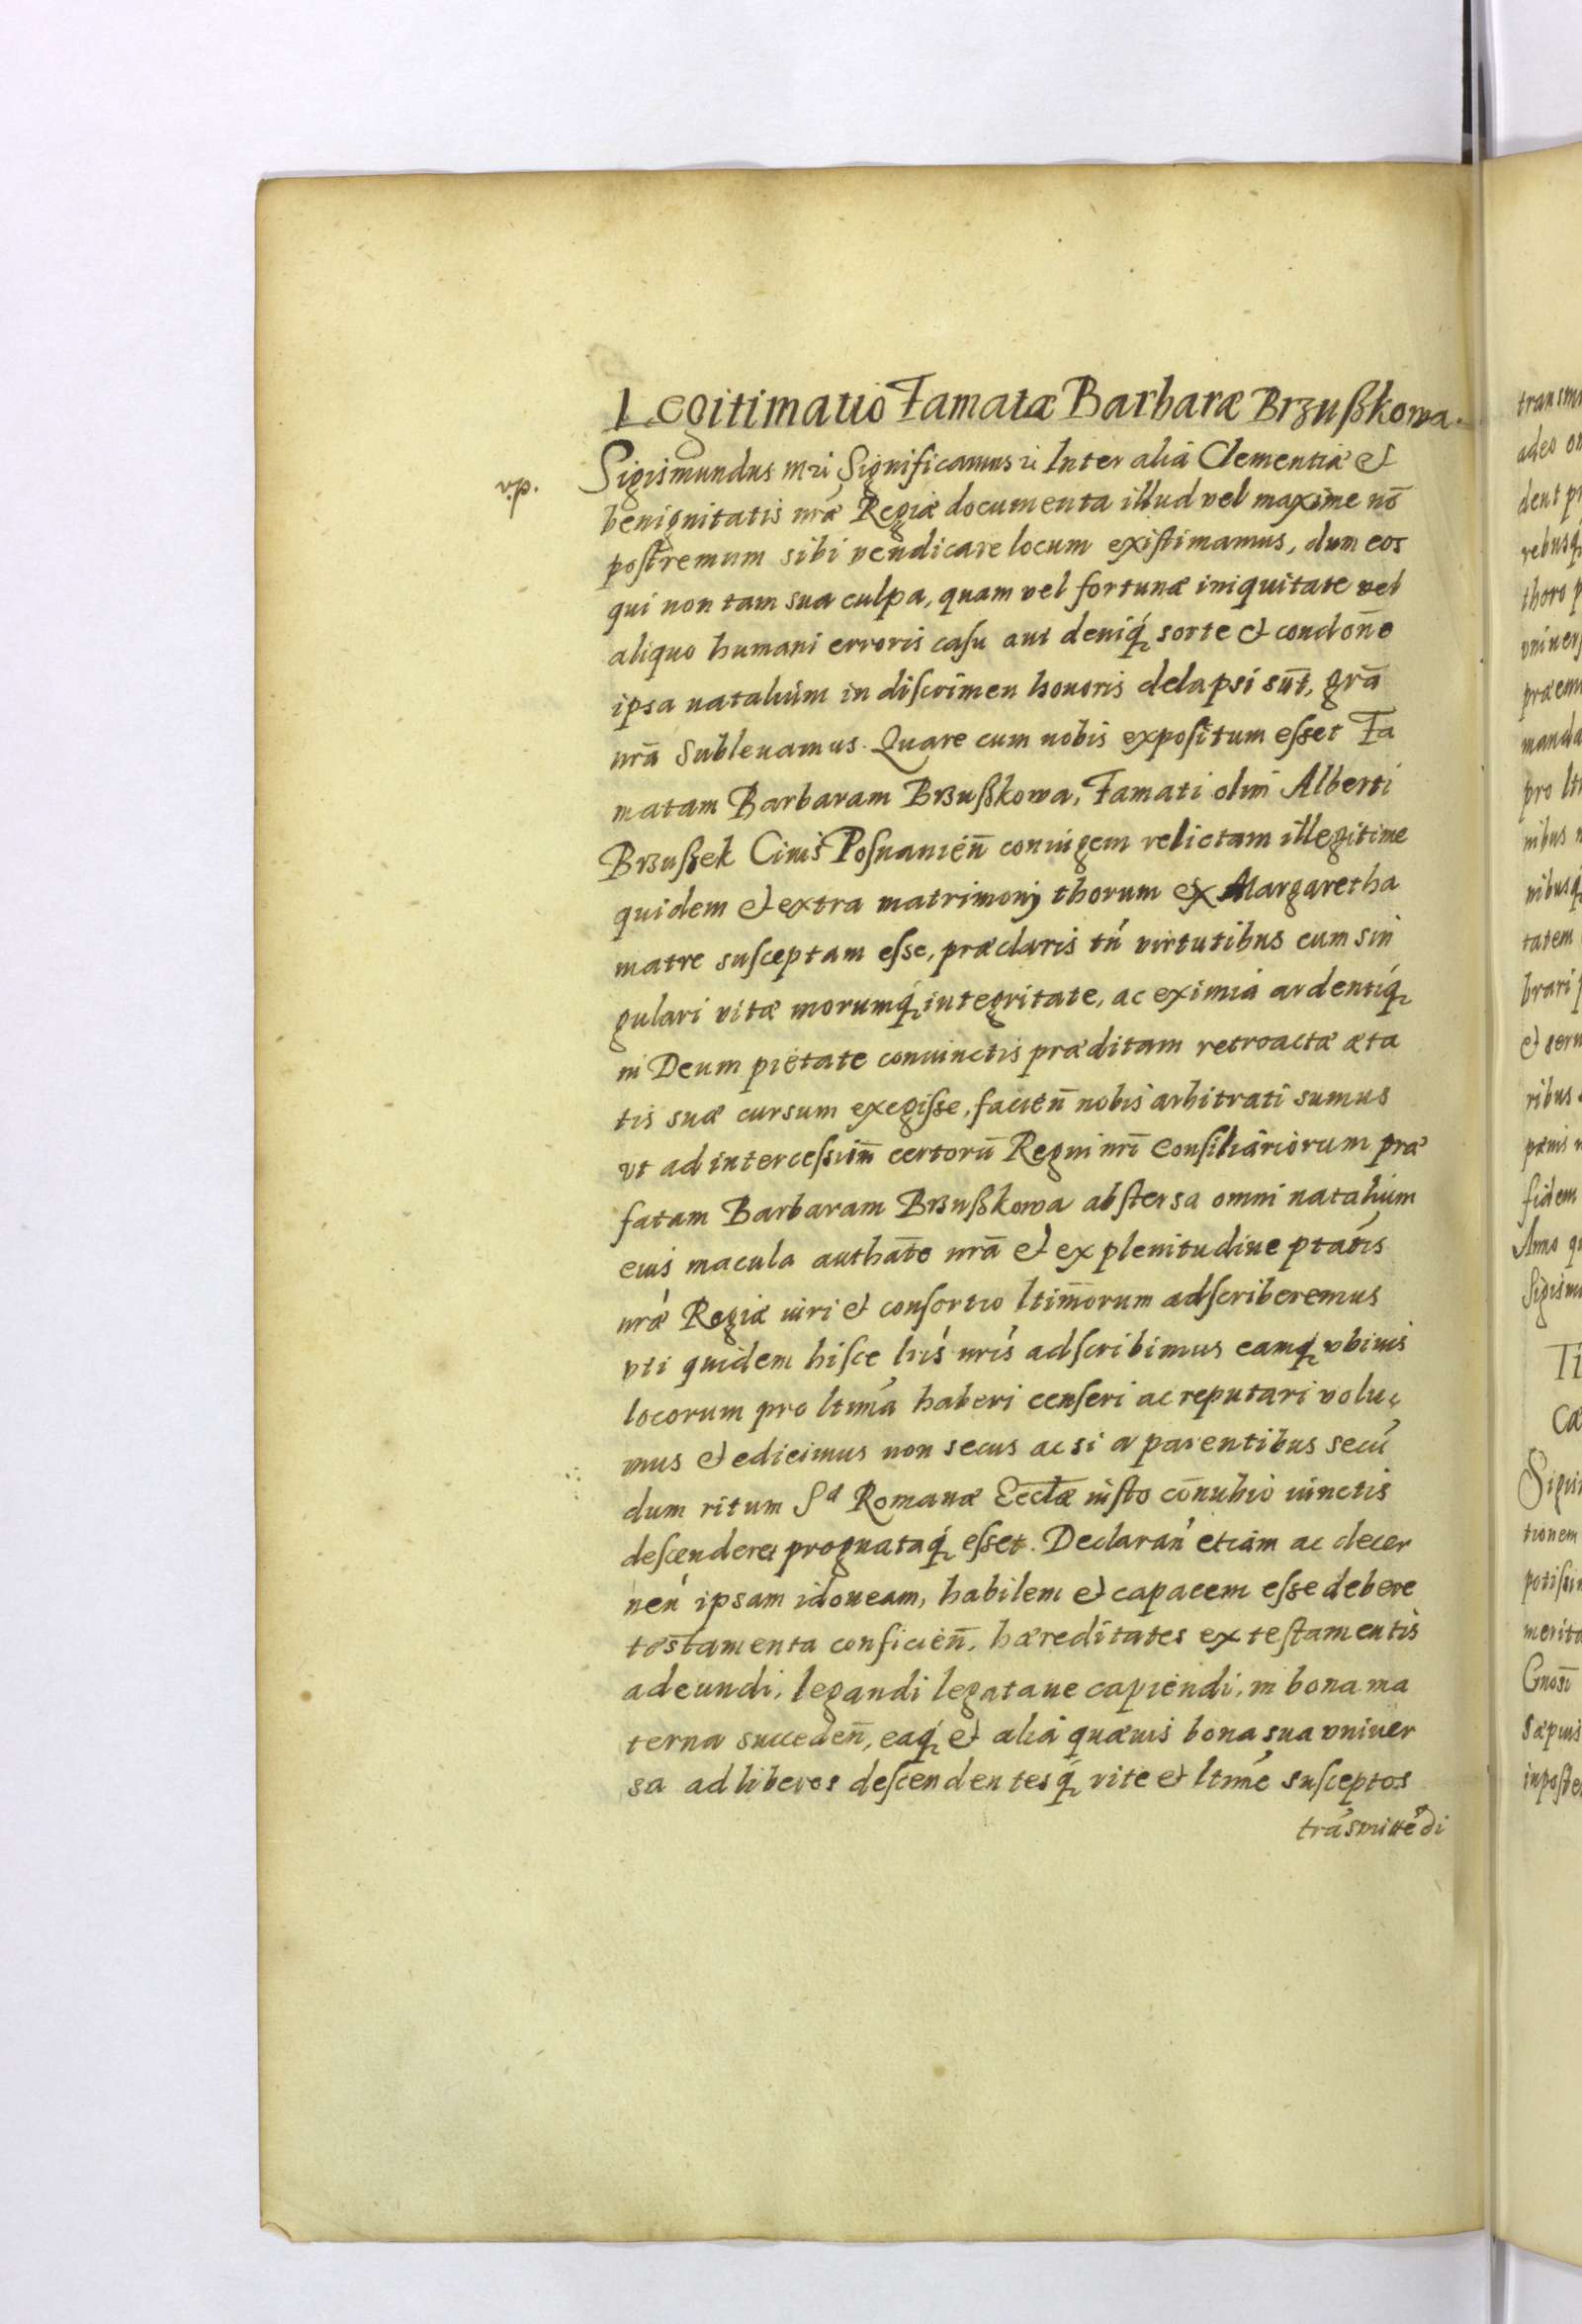 Legitimatio Famatæ Barbaræ Brzußkowa.
v.p.
Sigismundus m ꝛc Significamus ꝛc Inter alia Clementiæ et
benignitatis nr̃æ Regiæ documenta illud vel maxime nō
postremum sibi vendicare locum existimamus, dum eos
qui non tam sua culpa, quam vel fortunæ iniquitate vel
aliquo humani erroris casu aut deniq́ sorte et condoñe
ipsa natalium in discrimen honoris delapsi sūt, grā
nrā subleuamus. Quare cum nobis expositum esset Fa
matam Barbaram Brzußkowa, Famati olim Alberti
Brzußek Ciuis Posnanień coniugem relictam illegitime
quidem et extra matrimonij thorum ex Margaretha
matre susceptam esse, præclaris tń virtutibus cum sin
gulari vitæ morumq́ integritate, ac eximia ardentiq́
in Deum pietate coniunctis præditam retroactæ æta
tis suæ cursum exegisse, facień nobis arbitrati sumus
vt ad intercessioñ certorū Regni nrī Consiliariorum præ
fatam Barbaram Brzußkowa abstersa omni natalium
eius macula authāte nrā et ex plenitudine ptātis
nræ Regiæ iuri et consortio ltim̄orum adscriberemus
vti quidem hisce lrís nrís adscribimus eamq́ vbiuis
locorum pro ltimá haberi censeri ac reputari volu
mus et edicimus non secus ac si a parentibus secú
dum ritum Sᵃ Romanæ Ecclæ iusto cōnubio iunctis
descenderet prognataq́ esset. Declarań etiam ac decer
neń ipsam idoneam, habilem et capacem esse debere
testamenta conficień, hæreditates ex testamentis
adeundi, legandi legataue capiendi, in bona ma
terna succedeñ, eaq́ et alia quæuis bona sua vniuer
sa ad liberos descendentesq́ rite et ltimé susceptos
trásmittédi
transm
adeo
dent
rebusq́
thoro p
vniuers
præem
manda
pro
nibus
nibusq́
tatem
brari
et seru
ribus
pænis
fidem
Anno
Sigism
Ti
Cæ
Sigis
tionem
potissi
merita
Gnosī
sæpius
inposte